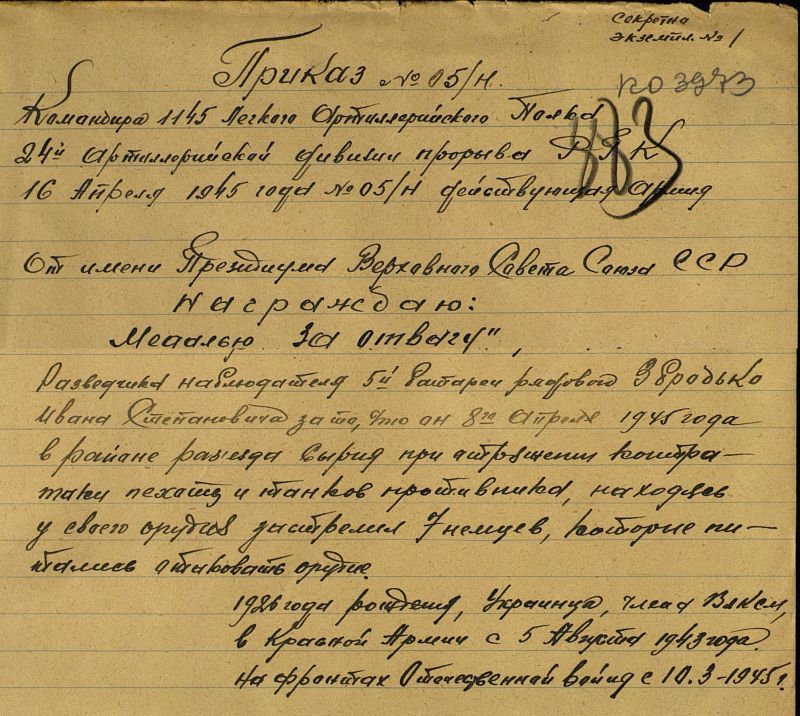 Секретна
экземпл. № 1
Приказ № 05/н.
по 3973
883
Командира 1145 Легкого Артиллерийского Полка
24й Артиллерийской дивизии прорыва РГК
16 Апреля 1945 года № 05/н действующая Армия
От имени Президиума Верховного Совета Союза ССР
Награждаю:
Медалью За отвагу",
Разведчика наблюдателя 5й батареи рядового Збродько
Ивана Степановича за то, что он 8го Апреля 1945 года
в районе разъезда Сырид при отражении контра-
таки пехоты и танков противника, находясь
у своего орудия застрелил 7 немцев, которые пы-
тались атаковать орудие.
1926 года рождения, Украинца, члена ВЛКСМ,
в Красной Армии с 5 Августа 1943 года.
На фронтах Отечественной войны с 10.3-1945 г.